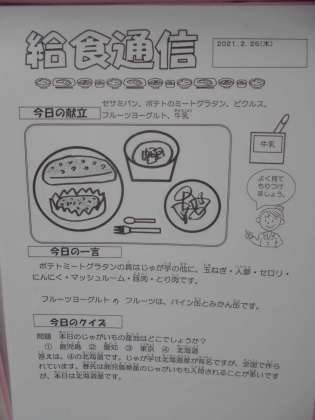 給食通信
2021.2.25(木)
今日の献立
セサミパン、ポテトのミートグラタン、ピクルス、
フルーツヨーグルト、牛乳
牛乳
よく見て
もりつけ
ましょう。
今日の一言
ポテトミートグラタンの具はじゃが芋の他に、玉ねぎ・人参・セロリ・
にんにく・マッシュルーム・豚肉・とり肉です。
フルーツヨーグルトの フルーツは、パイン缶とみかん缶です。
今日のクイズ
問題 本日のじゃがいもの産地はどこでしょうか?
① 鹿児島 ② 愛知 ③ 東京 ④ 北海道
答えは、④の北海道です。じゃが芋は北海道産が有名ですが、全国で作ら
れています。春先は鹿児島県産のじゃがいもも入荷されることが多いです
が、本日は北海道産です。